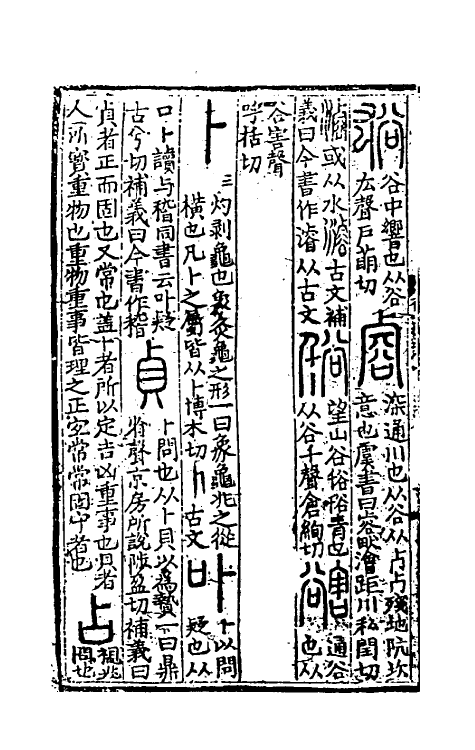 谹
谷中響也从谷
厷聲戶萌切
㕡
深通川也从谷从卢卢殘地阬坎
意也虞書曰㕡畎澮距川私閏切
濬或从水濬古文補
義曰今書作濬从古文
谸
望山谷俗俗青也
从谷千聲倉絢切
豁
通谷
也从
谷害聲
呼括切
卜
三
灼剥龜也象灸龜之形一曰象龜兆之從
橫也凡卜之屬皆从卜博木切卜古文
卟
卜以問
疑也从
口卜讀与稽同書云卟疑
古兮切補義曰今書作稽
貞
卜問也从卜貝以為贄一曰鼎
省聲京房所說陟盈切補義曰
貞者正而固也又常也蓋卜者所以定吉凶重事也貝者
人所寳重物也重物重事皆理之正宐常常固守者也
占
視兆
問也